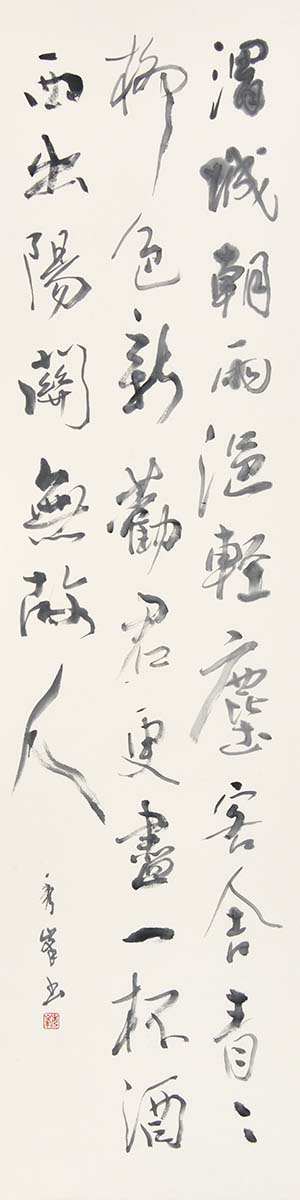 渭城朝雨浥軽塵客舎青〻
柳色新勸君更盡一杯酒
西出陽關無故人
秀峯書